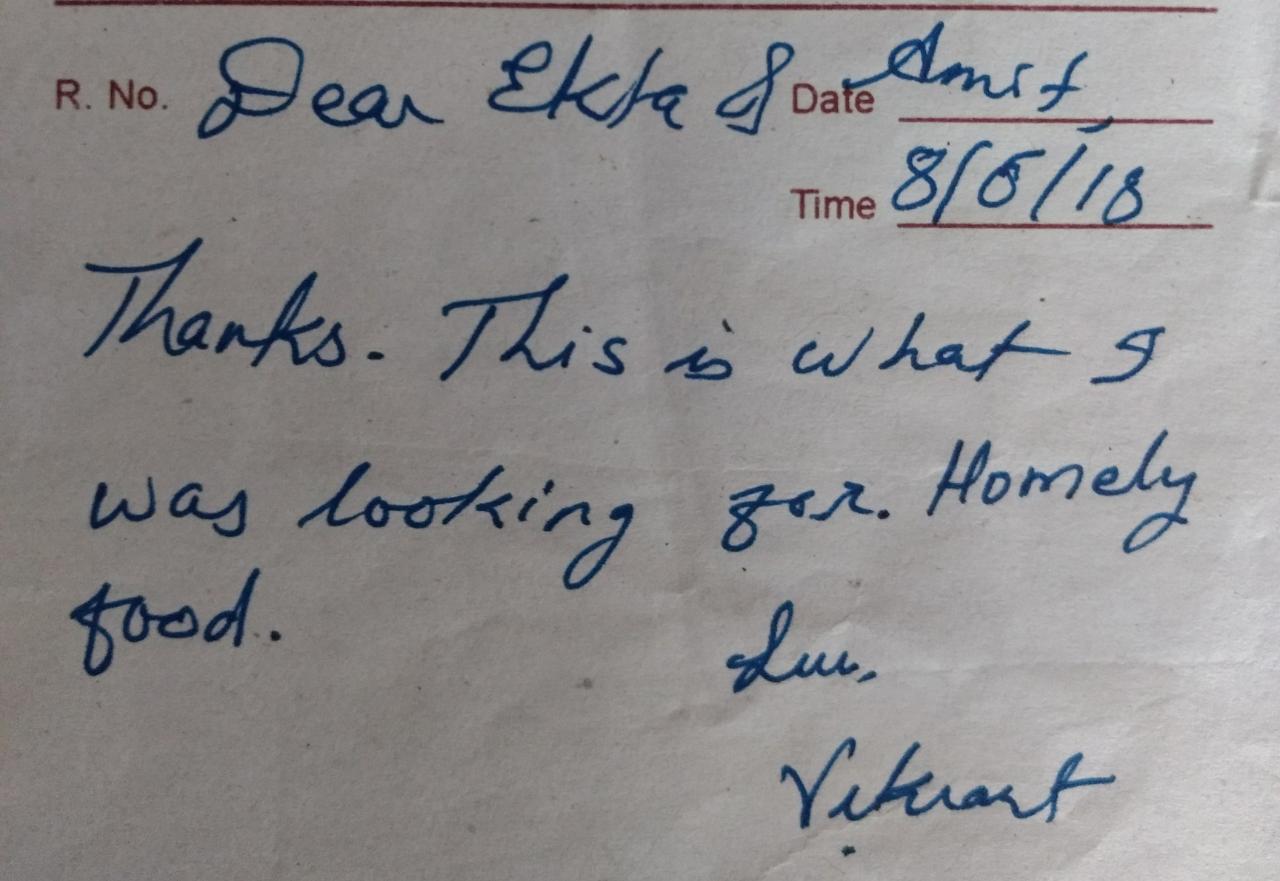 R. No. Dear Ekta & Date Amit,
Time 8/5/18
Thanks. This is what I
was looking for. Homely
food.
Luv,
Vikrant